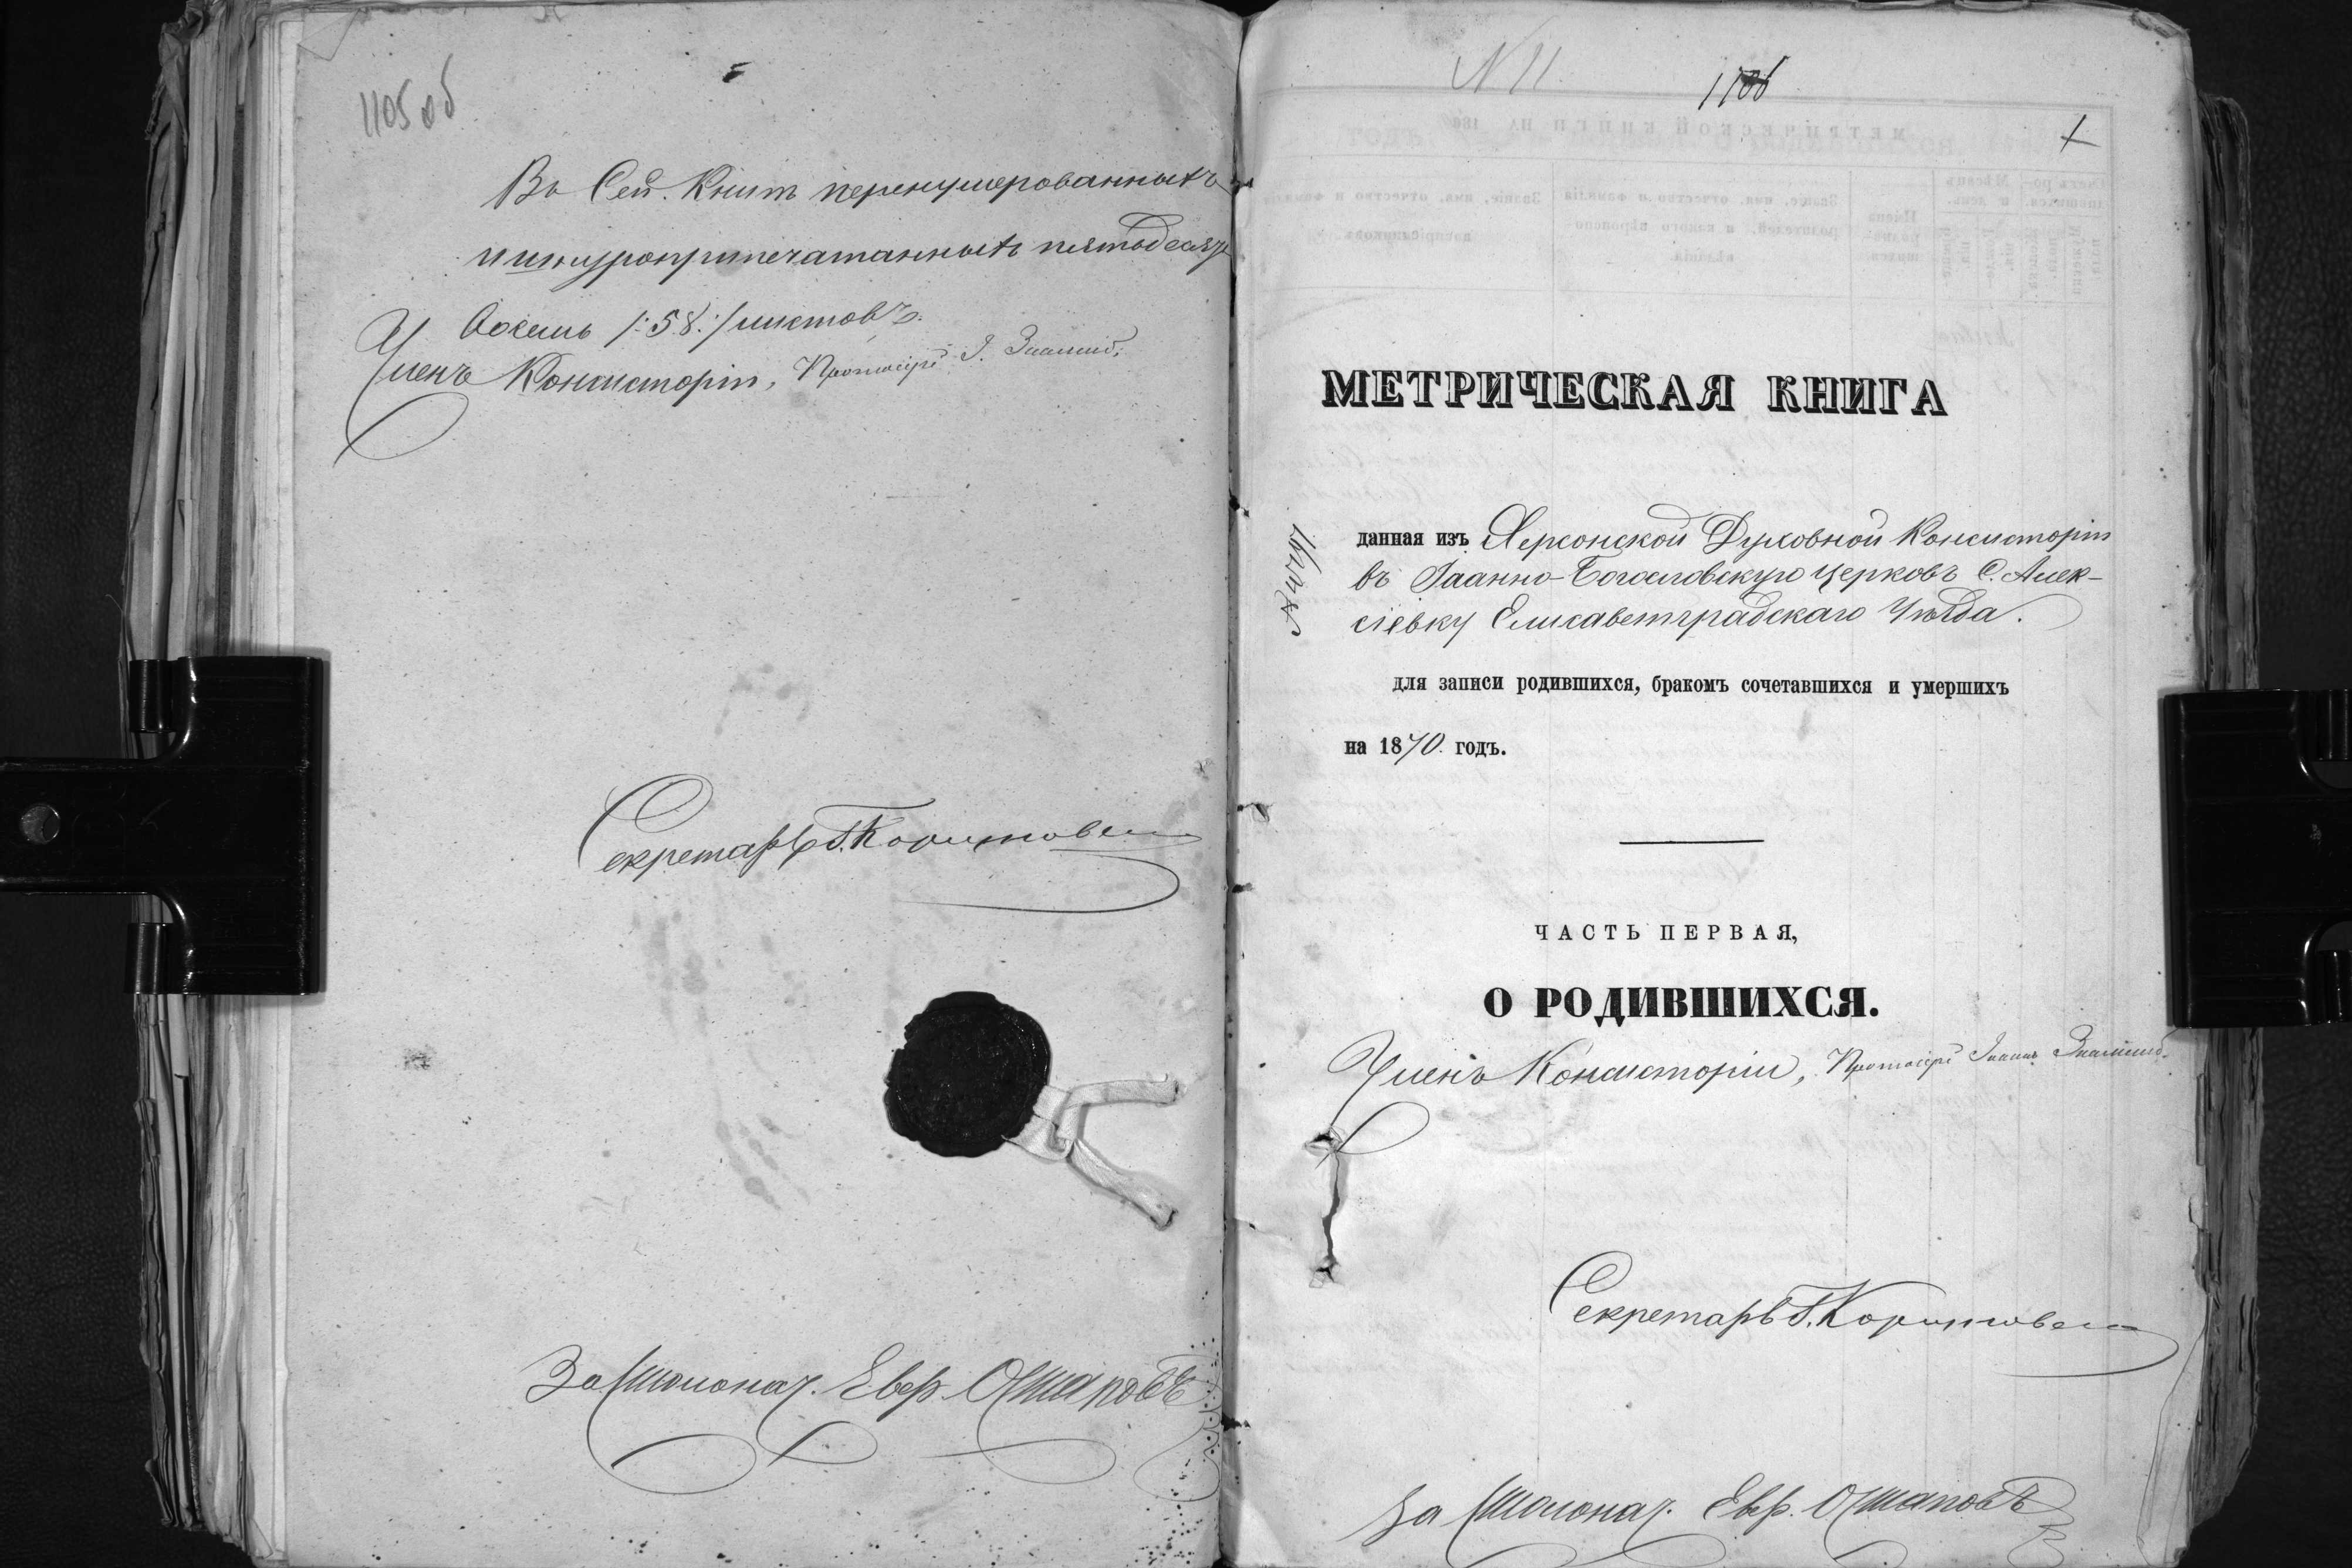 1105 об
Въ Сей Книгѣ перенумерованныхъ
и шнуроприпечатанныхъ пятьдесятъ
Восемь /:58:/ листовъ.
Членъ Консисторіи, Протоіерей І.
Секретарь
За Столонач. Евф.
N 11
1106
МЕТРИЧЕСКАЯ КНИГА
данная изъ Херсонской Духовной Консисторіи
въ Іоанно-Богословскую церковь С. Алек-
сіевку Елисаветградскаго Уѣзда.
для записи родившихся, бракомъ сочетавшихся и умершихъ
на 1870 годъ.
ЧАСТЬ ПЕРВАЯ,
О РОДИВШИХСЯ.
Членъ Консисторіи, Протоіерей Іоаннъ
Секретарь
За Столонач. Евф.